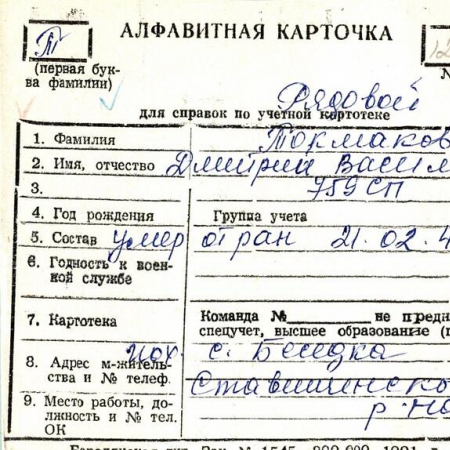 Т
АЛФАВИТНАЯ КАРТОЧКА
12
(первая бук-
ва фамилии)
№
Рядовой
для справок по учетной картотеке
1. Фамилия Токмаков
2. Имя, отчество Дмитрий Васил
3. 759 СП
4. Год рождения Группа учета
5. Состав умер от ран 21.02.4
6. Годность к воен-
ной службе
7. Картотека Команда №
не предн
спецучет, высшее образование (п
8. Адрес м-житель-
ства и № телеф.
пох. с. Беседка
Ставищенско
р-на
9. Место работы, до-
лжность и № тел.
ОК